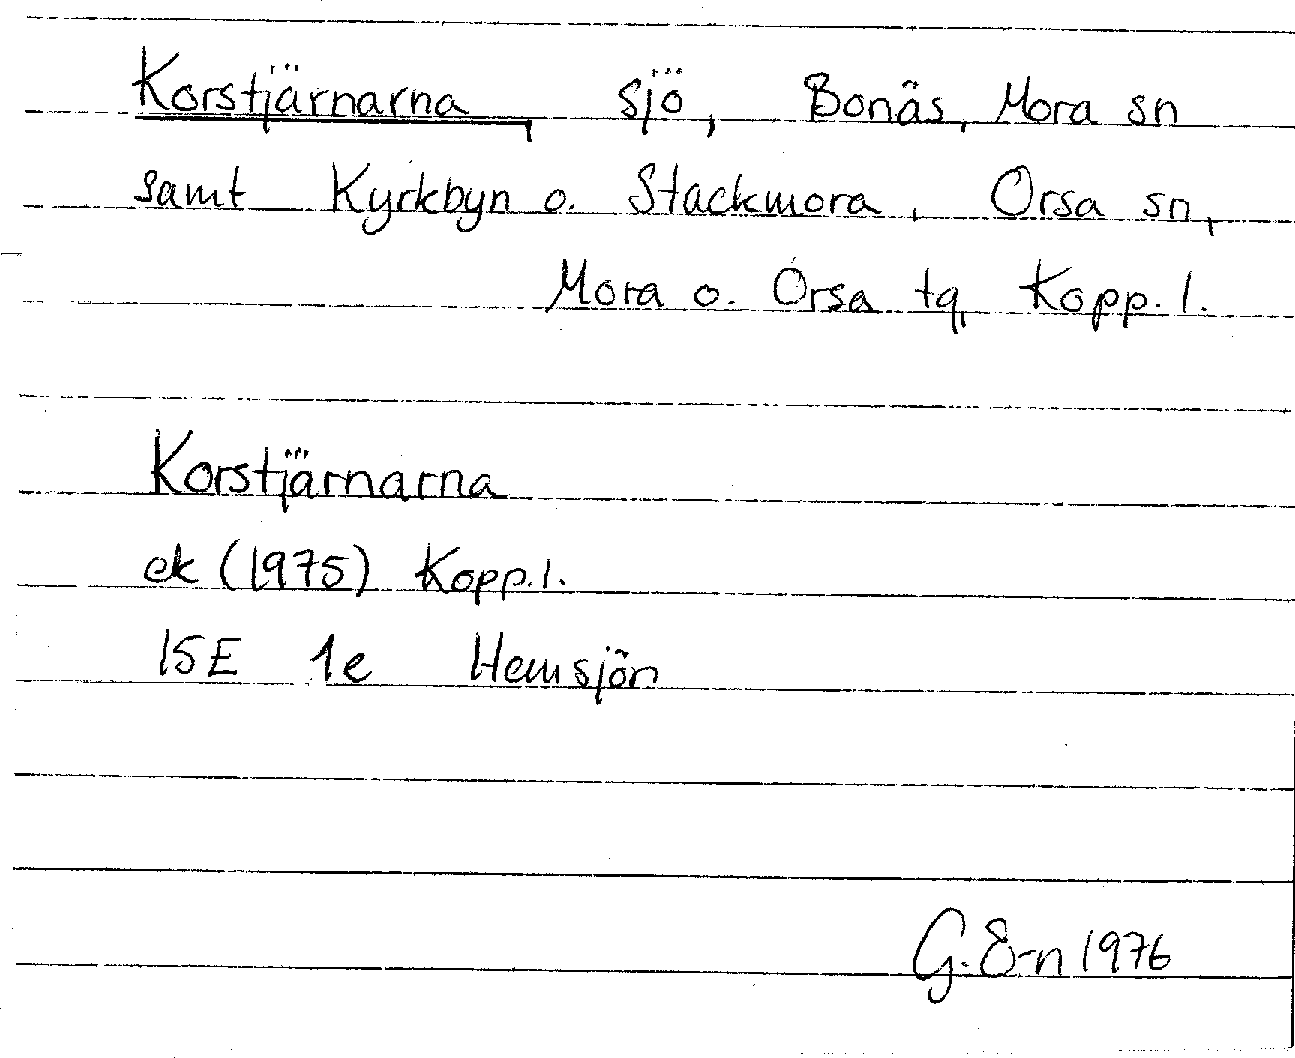 Korstjärnarna, sjö, Bonäs, Mora sn
samt Kyrkbyn o. Stackmora, Orsa sn,
Mora o. Orsa tg, Kopp. l.
Korstjärnarna
ek (1975) Kopp. l.
15E 1e Hemsjön
G. Ö-n 1976